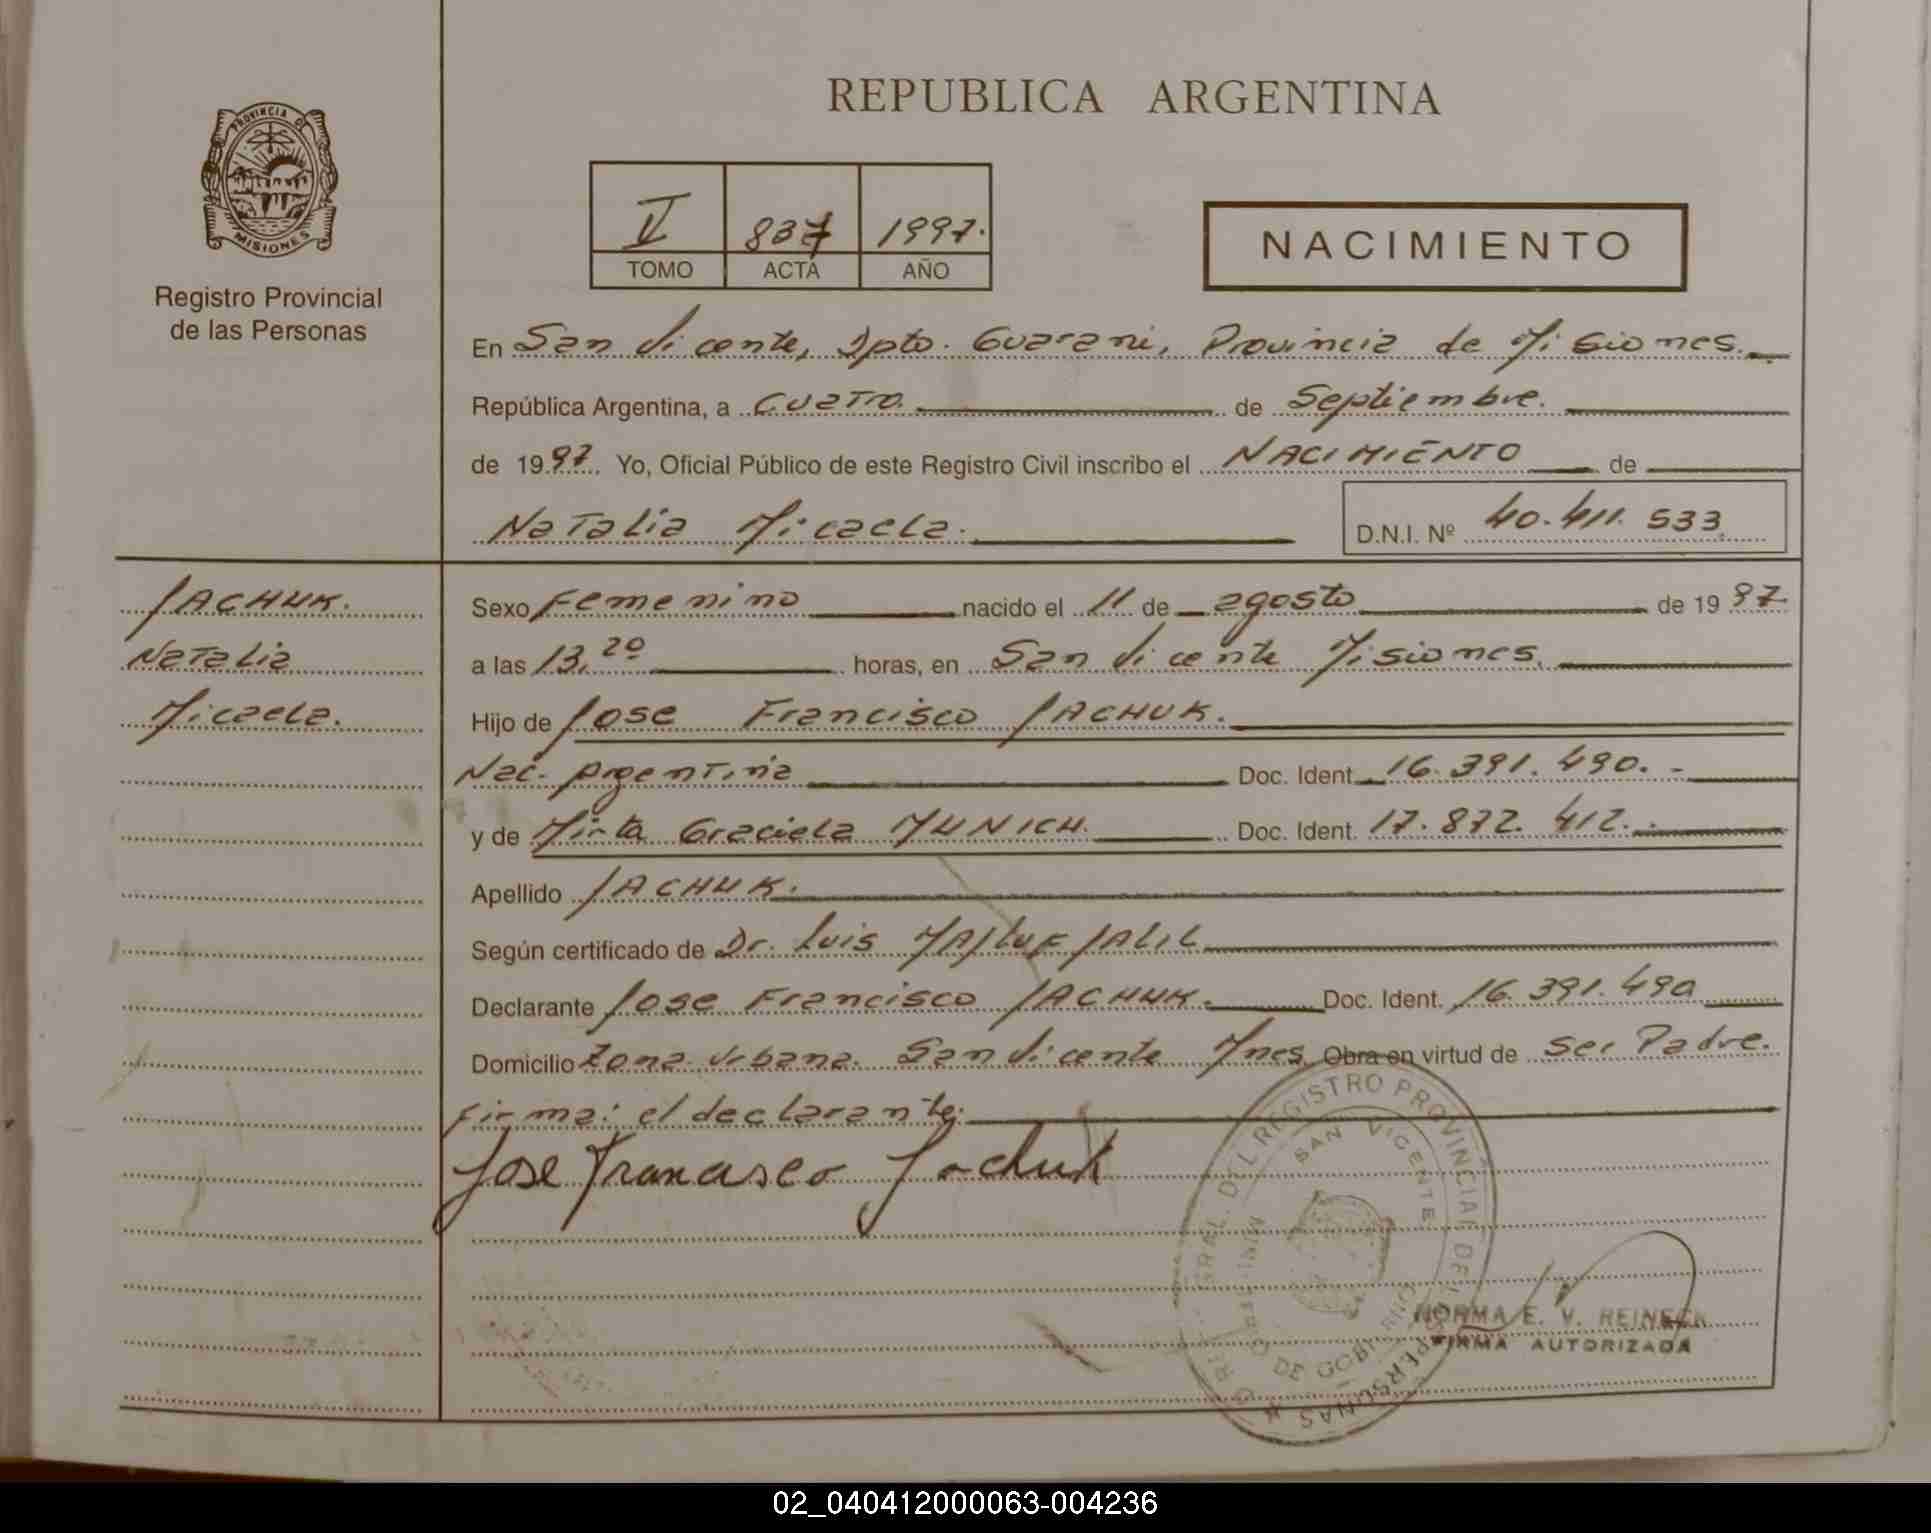 REPUBLICA ARGENTINA
PROVINCIA DE
MISIONES
Registro Provincial
de las Personas
V 837 1997.
TOMO ACTA AÑO
NACIMIENTO
En San Vicente, Dpto. Guarani, Provincia de Misiones.
República Argentina, a Cuatro. de Septiembre.
de 1997. Yo, Oficial Público de este Registro Civil inscribo el NACIMIENTO de
Natalia Micaela. D.N.I. Nº 40.411.533
JACHUK.
Natalia
Micaela.
Sexo Femenino nacido el 11 de agosto de 1997.
a las 13,20 horas, en San Vicente Misiones.
Hijo de Jose Francisco JACHUK.
Nac. Argentina Doc. Ident. 16.391.490.-
y de Mirta Graciela MUNICH. Doc. Ident. 17.872.412.-
Apellido JACHUK.
Según certificado de Dr. Luis JALIL
Declarante Jose Francisco JACHUK. Doc. Ident. 16.391.490
Domicilio Zona Urbana. San Vicente Mnes. Obra en virtud de ser Padre.
Firma: el declarante:
Jose Francisco Jachuk
DEL REGISTRO PROVINCIAL DE LAS PERSONAS
SAN VICENTE
DE GOBIERNO
NORMA E. V. REINECK
FIRMA AUTORIZADA
02_040412000063-004236